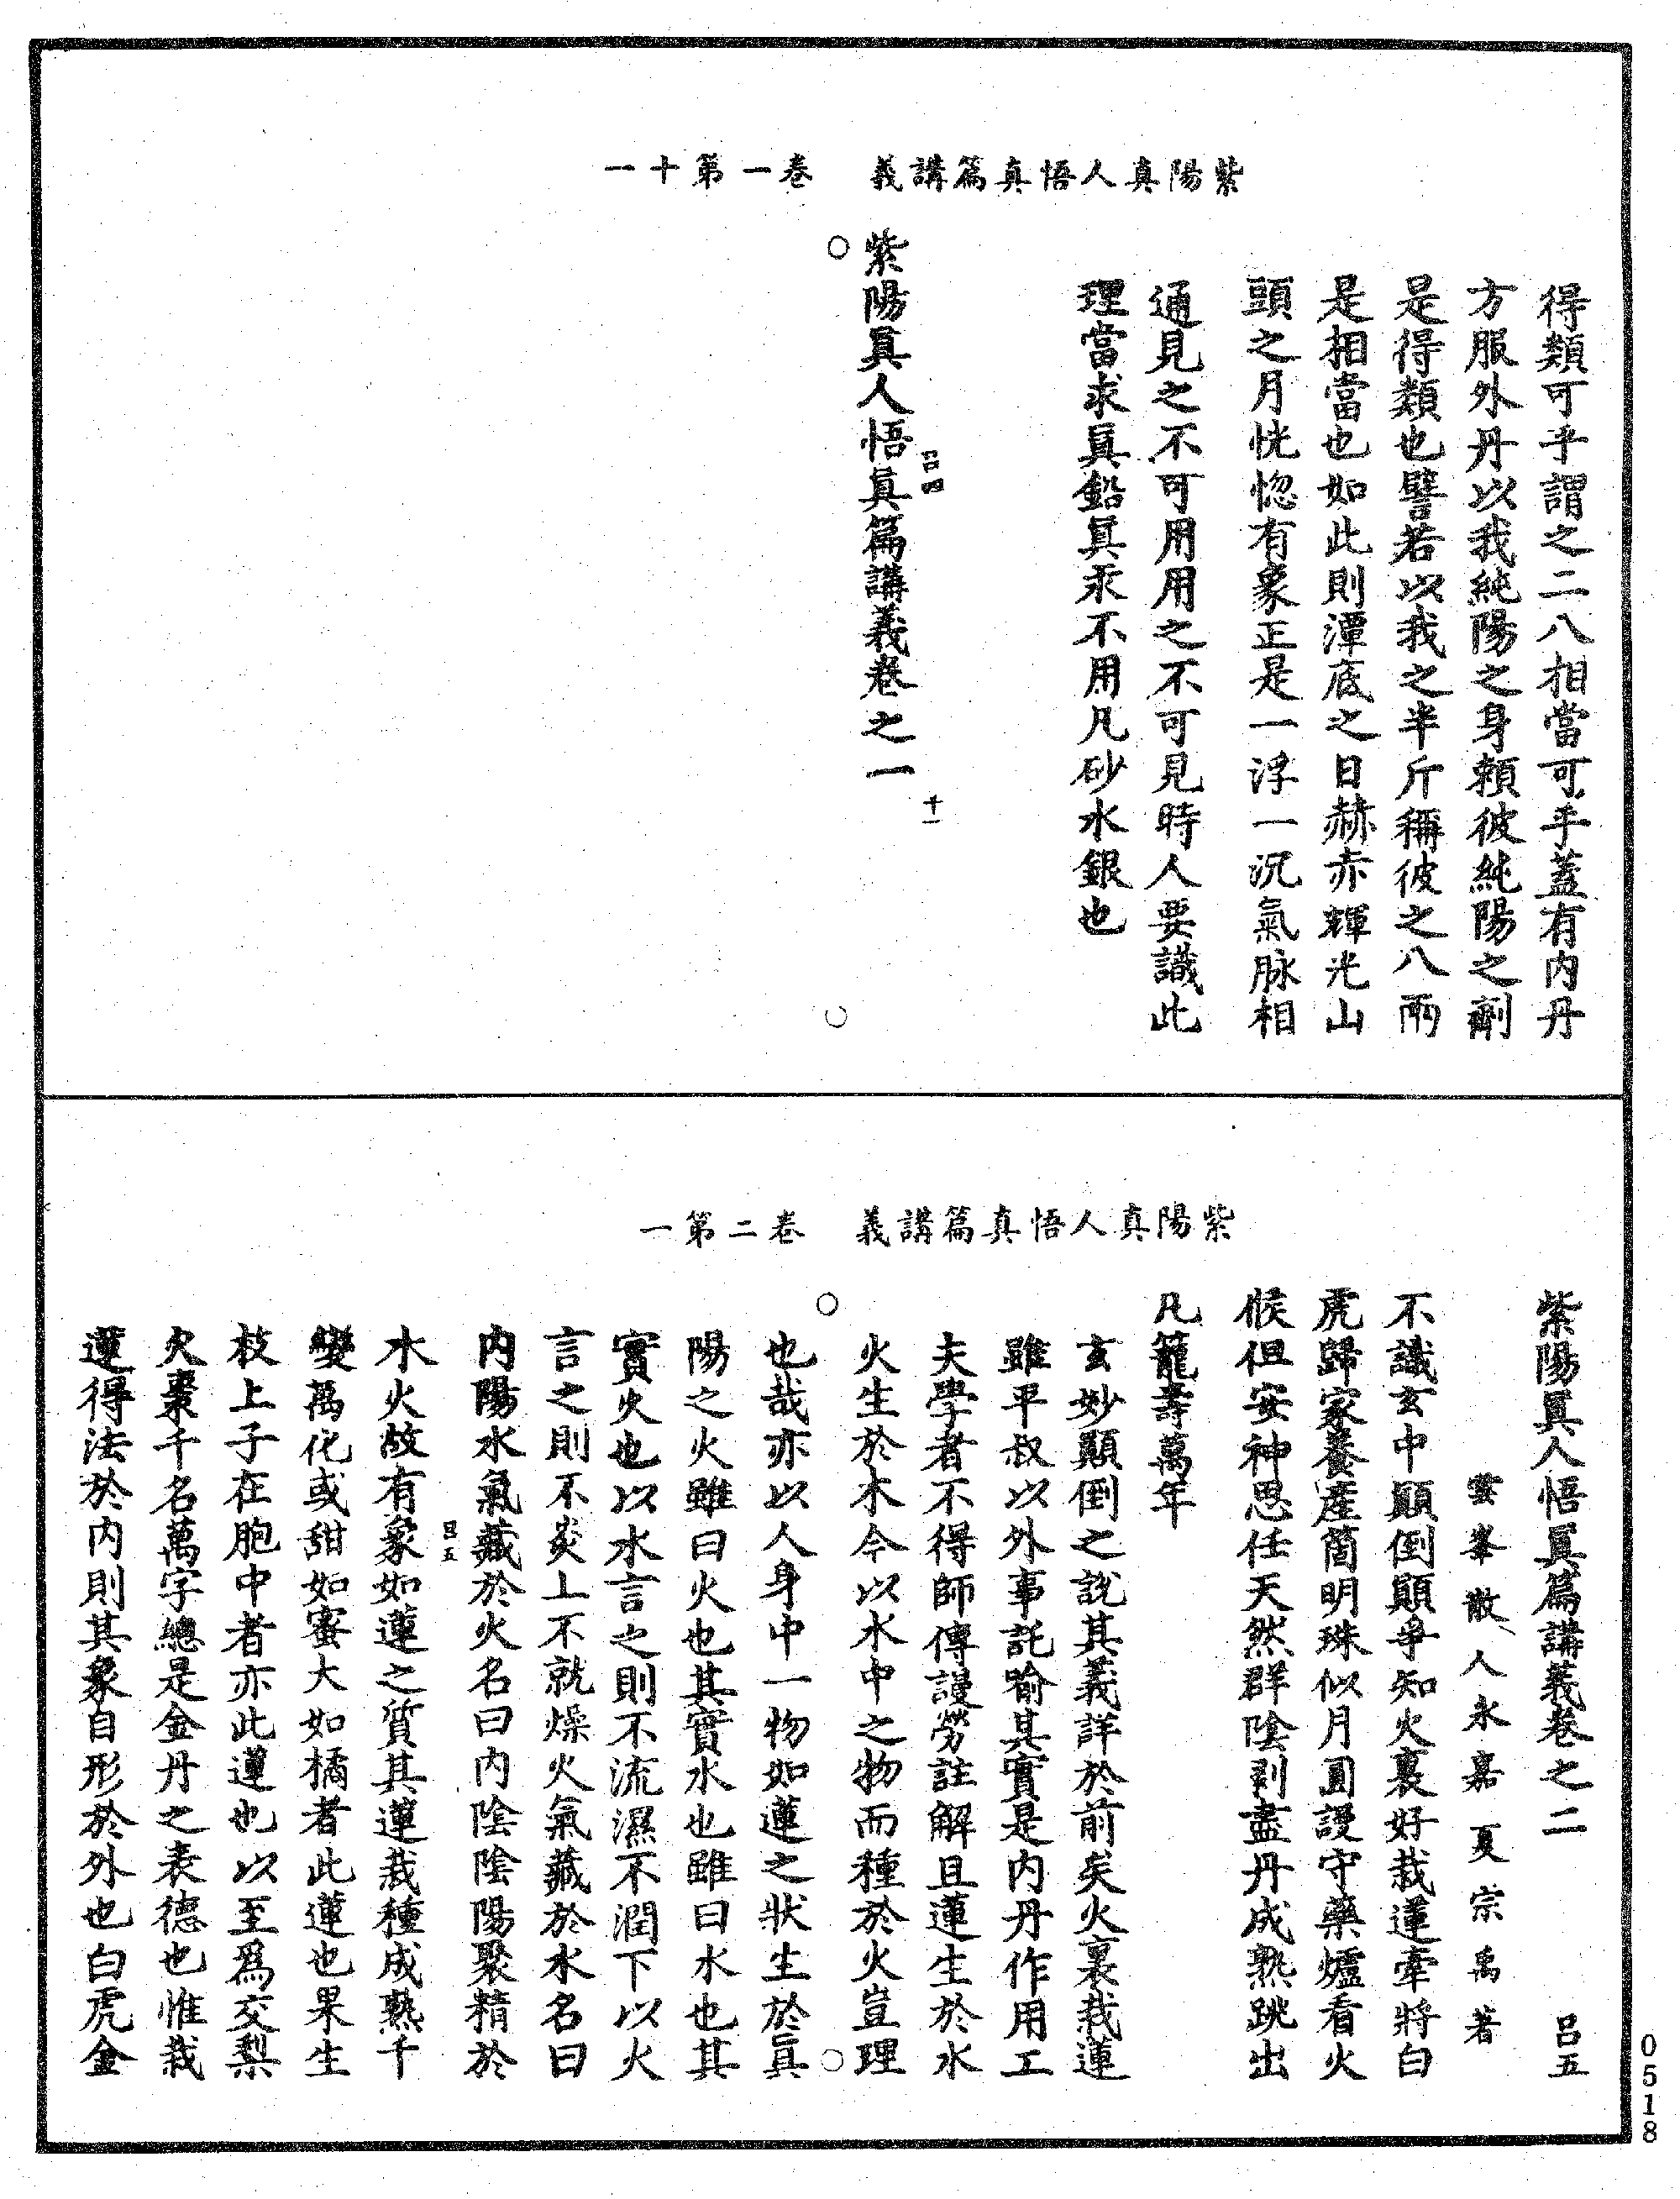 紫陽真人悟真篇講義　卷一第十一
得類可乎謂之二八相當可乎蓋有内丹
方服外丹以我純陽之身賴彼純陽之劑
是得類也譬若以我之半斤稱彼之八兩
是相當也如此則潭底之日赫赤輝光山
頭之月恍惚有象正是一浮一沉氣脉相
通見之不可用用之不可見時人要識此
理當求眞鉛眞汞不用凡砂水銀也
呂四　十一
紫陽眞人悟眞篇講義卷之一
紫陽真人悟真篇講義　卷二第一
紫陽眞人悟眞篇講義卷之二　呂五
雲峯散人永嘉夏宗禹著
不識玄中顚倒顚爭知火裏好栽蓮牽將白
虎歸家養產箇明珠似月圓謾守藥爐看火
候但安神思任天然群陰剥盡丹成熟跳出
凡籠壽萬年
玄妙顚倒之說其義詳於前矣火裏栽蓮
雖平叔以外事託喻其實是内丹作用工
夫學者不得師傳謾勞註解且蓮生於水
火生於木今以水中之物而種於火豈理
也哉亦以人身中一物如蓮之狀生於眞
陽之火雖曰火也其實水也雖曰水也其
實火也以水言之則不流濕不潤下以火
言之則不炎上不就燥火氣藏於水名曰
内陽水氣藏於火名曰内陰陰陽聚精於
呂五
水火故有象如蓮之質其蓮栽種成熟千
變萬化或甜如蜜大如橘者此蓮也果生
枝上子在胞中者亦此蓮也以至爲交梨
火棗千名萬字總是金丹之表德也惟栽
蓮得法於内則其象自形於外也白虎金
0518